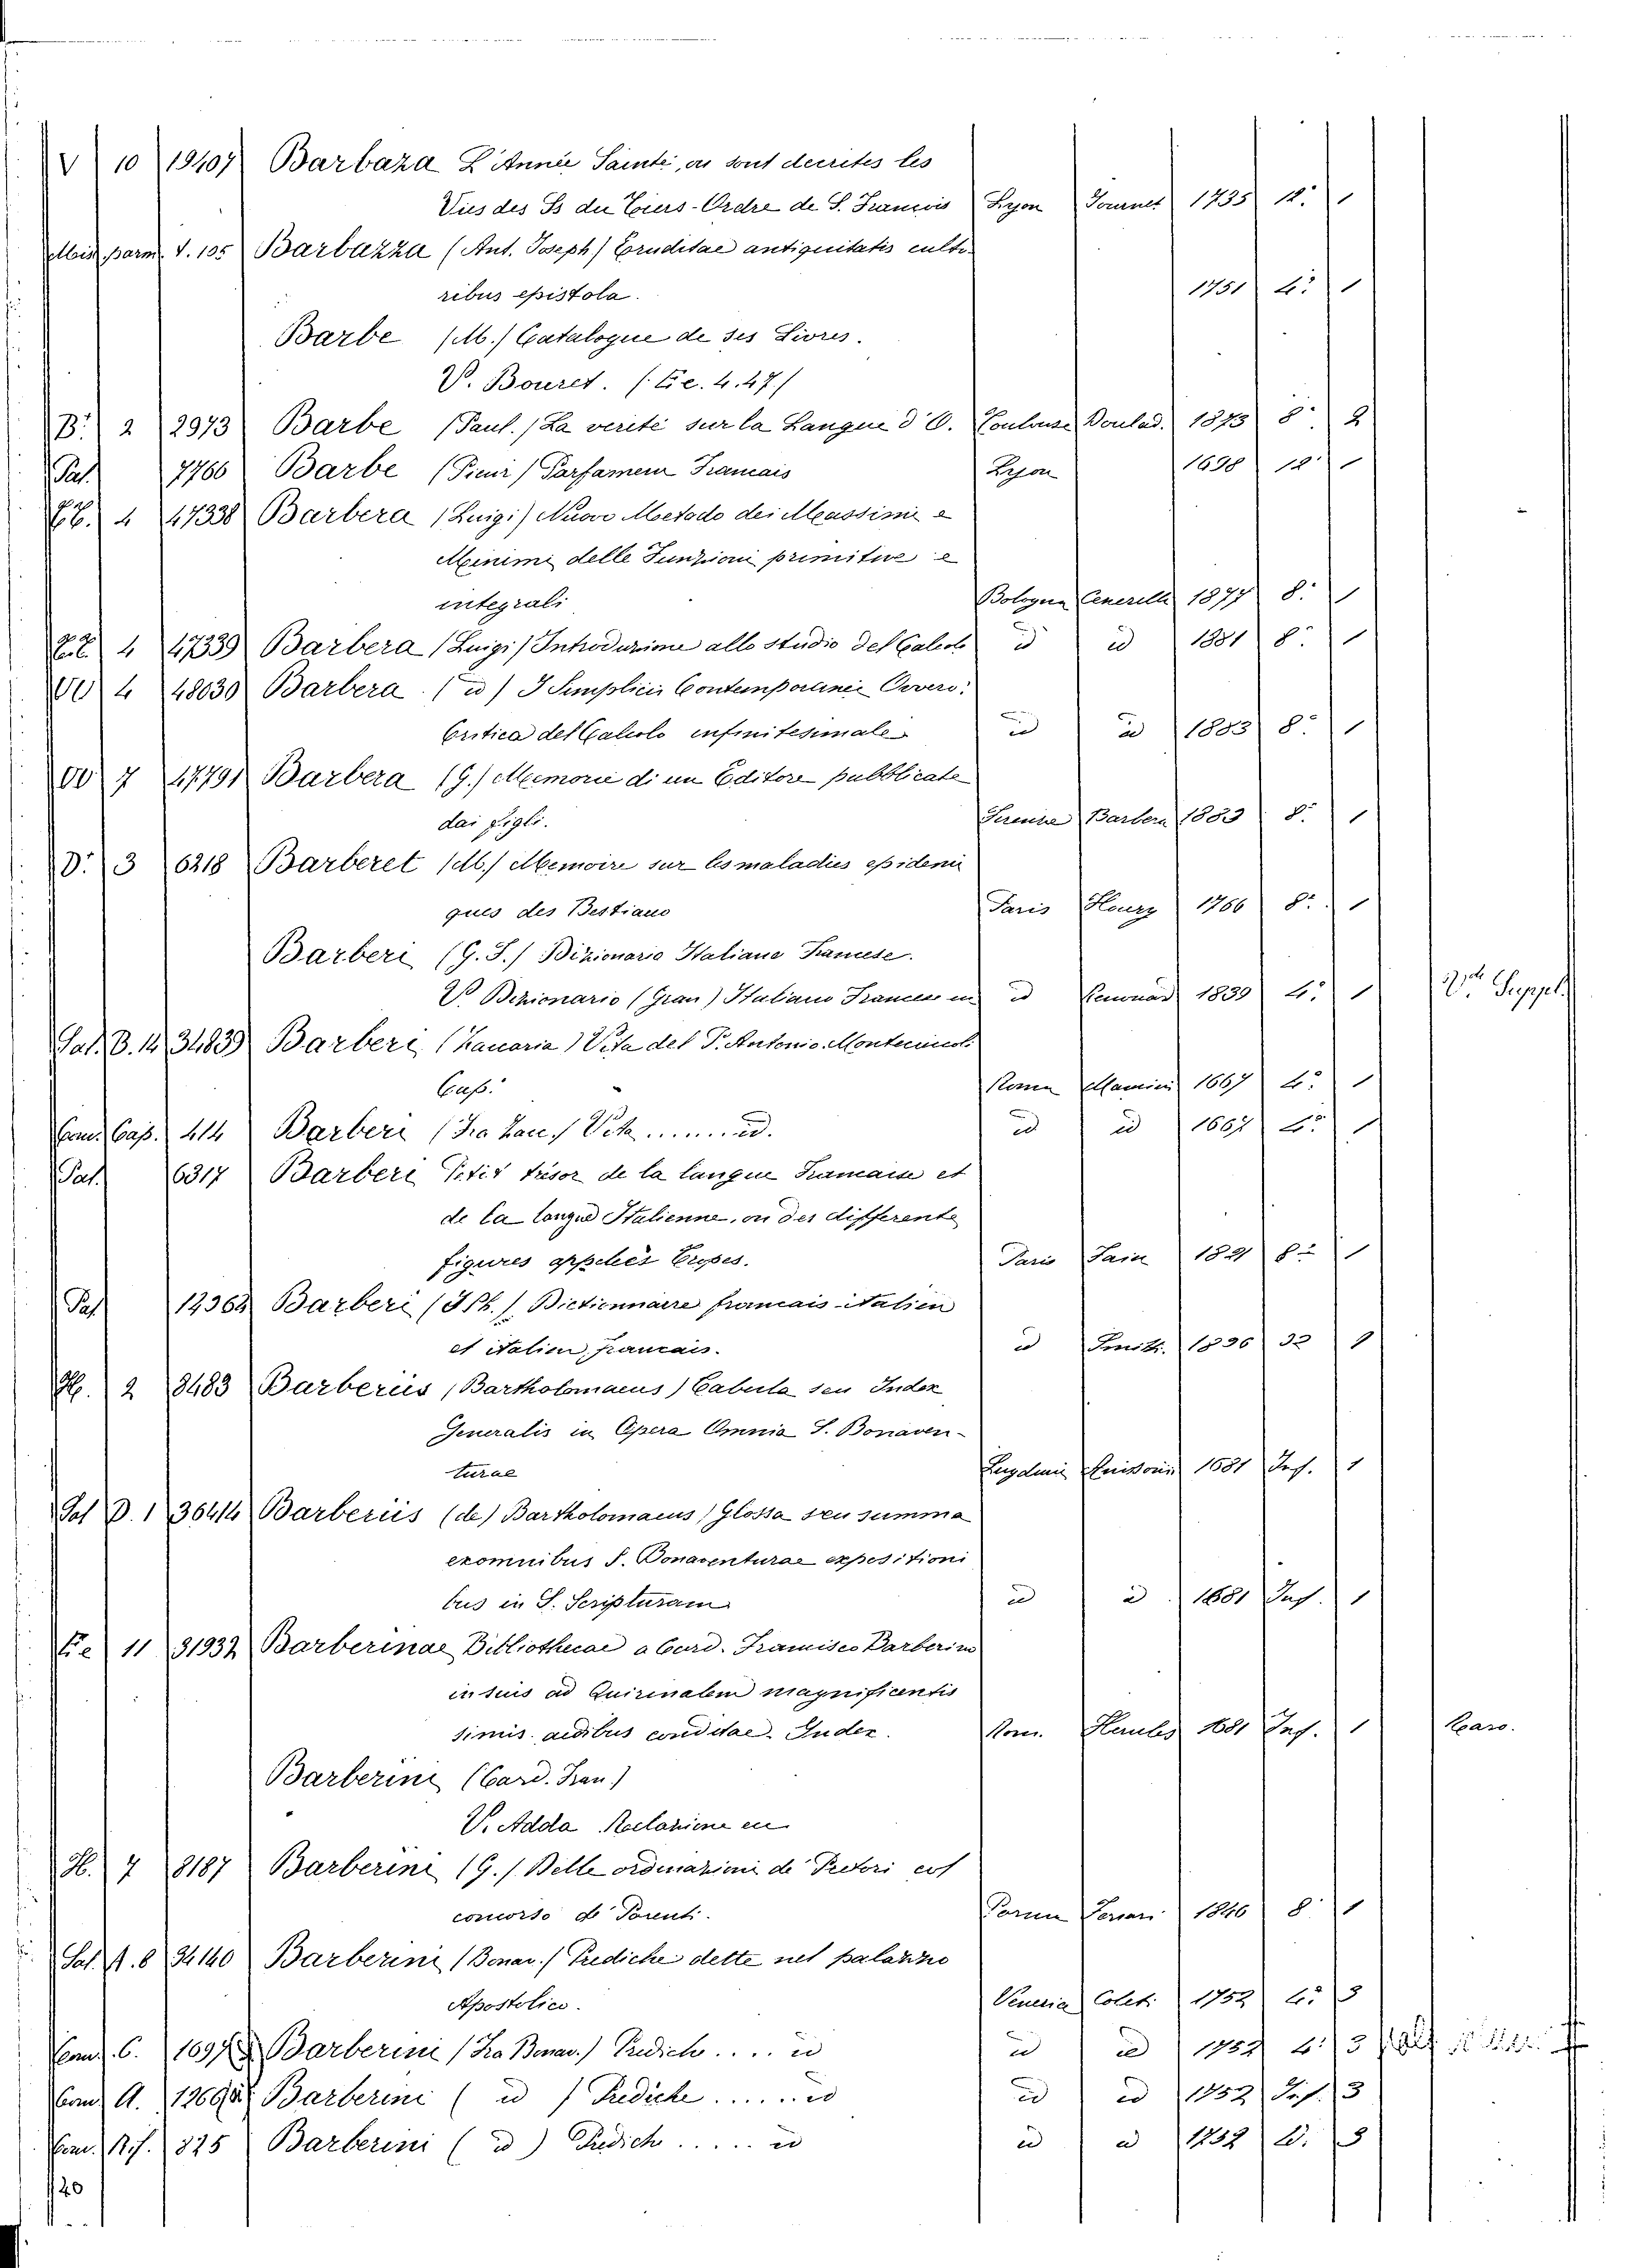 V 10 19407 Barbaza L'Année Sainte, ou sont decrites les
Vies des Ss du Tiers-Ordre de S. François Lyon Journet 1735 12. 1
Misc. parm. V. 105 Barbazza (Ant. Joseph) Eruditae antiquitatis culto-
ribus epistola. 1751 4.º 1
Barbe (M.) Catalogue de ses Livres.
V. Bouret. (Ee. 4.47)
B. 2 2973 Barbe (Paul.) La verité sur la Langue d'O. Toulouse Doulad. 1873 8.º 2
Pal. 7766 Barbe (Sieur) Parfameur Francais Lyon 1698 12.º 1
4 47338 Barbera (Luigi) Nuovo Metodo dei Massimi e
Minimi delle Funzioni primitive e
integrali Bologna Cenerelli 1877 8.º 1
4 47339 Barbera (Luigi) Introduzione allo studio del Calcolo id id 1881 8.º 1
4 48030 Barbera (id) I Semplicii Contemporanei Ovvero:
Critica del Calcolo infinitesimale id id 1883 8.º 1
OO 7 47791 Barbera (G.) Memorie di un Editore pubblicate
dai figli. Firenze Barbera 1883 8.º 1
D. 3 6218 Barberet (M.) Memoire sur les maladies epidemi
ques des Bestiaux Paris Houry 1766 8.º 1
Barberi (G. F.) Dizionario Italiano Francese.
V. Dizionario (Gran) Italiano Francese in id Renouard 1839 4.º 1 V. Suppl.
Sal. B. 14 34839 Barberi (Zaccaria) Vita del P. Antonio Montecicoli
Cap. Roma Mancini 1667 4.º 1
Conv. Cap. 414 Barberi (Fra Zacc.) Vita ...... id. id id 1667 4.º 1
Pal. 6317 Barberi Petit trésor de la langue Francaise et
de la langue Italienne, ou des differente
figures appelés Tropes. Paris Jain 1821 8.º 1
Pal. 12364 Barberi (J. Ph.) Dictionnaire francais-italien
et italien, francais. id Smith. 1836 32 1
H. 2 8483 Barberiis (Bartholomaeus) Tabula seu Index
Generalis in Opera Omnia S. Bonaven-
turae Lugduni Anissonii 1681 Inf. 1
Sal D. 1 36414 Barberiis (de) Bartholomaeus) Glossa seu summa
ex omnibus S. Bonaventurae expositioni
bus in S. Scripturam id id 1681 Inf. 1
Ee 11 31932 Barberinae Bibliothecae a Card. Francisco Barberino
in suis ad Quirinalem magnificentis
simis aedibus conditae Index. Rom. Hautes 1681 Inf. 1 Raro.
Barberini (Card. Fran.)
V. Adda Reclazione en
H. 7 8187 Barberini (G.) Delle ordinazioni de' Pretori col
concorso de' Parenti. Parma Ferrari 1846 8.º 1
Sal. A. 8 34140 Barberini (Bonav.) Prediche dette nel palazzo
Apostolico. Venezia Coleti 1752 4.º 3
Conv. C. Barberini (Fra Bonav.) Prediche .... id id id 1752 4.º 3
Conv. A. Barberini (id) Prediche ...... id id id 1752 Inf. 3
Conv. Rif. 825 Barberini (id) Prediche ..... id id id 1752 id. 3
120